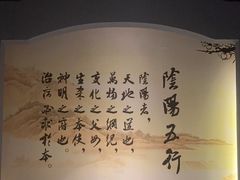 陰陽五行
陰陽者，
天地之道也，
萬物之綱紀，
變化之父母，
生殺之本始，
神明之府也，
治病必求於本。